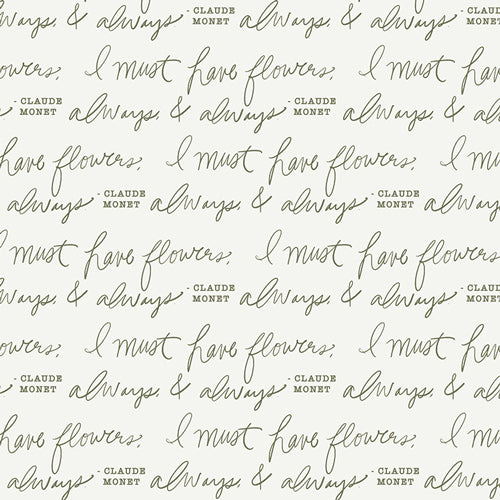 always, & always - CLAUDE MONET always, & always - CLAUDE MONET
flowers, I must have flowers, I must have
- CLAUDE MONET always, & always - CLAUDE MONET always, &
have flowers, I must have flowers, I must
always - CLAUDE MONET always, & always - CLAUDE MONET always
I must have flowers, I must have flowers,
always, & always - CLAUDE MONET always, & always - CLAUDE MONET
flowers, I must have flowers, I must have
- CLAUDE MONET always, & always - CLAUDE MONET always, &
have flowers, I must have flowers, I must
always - CLAUDE MONET always, & always - CLAUDE MONET always